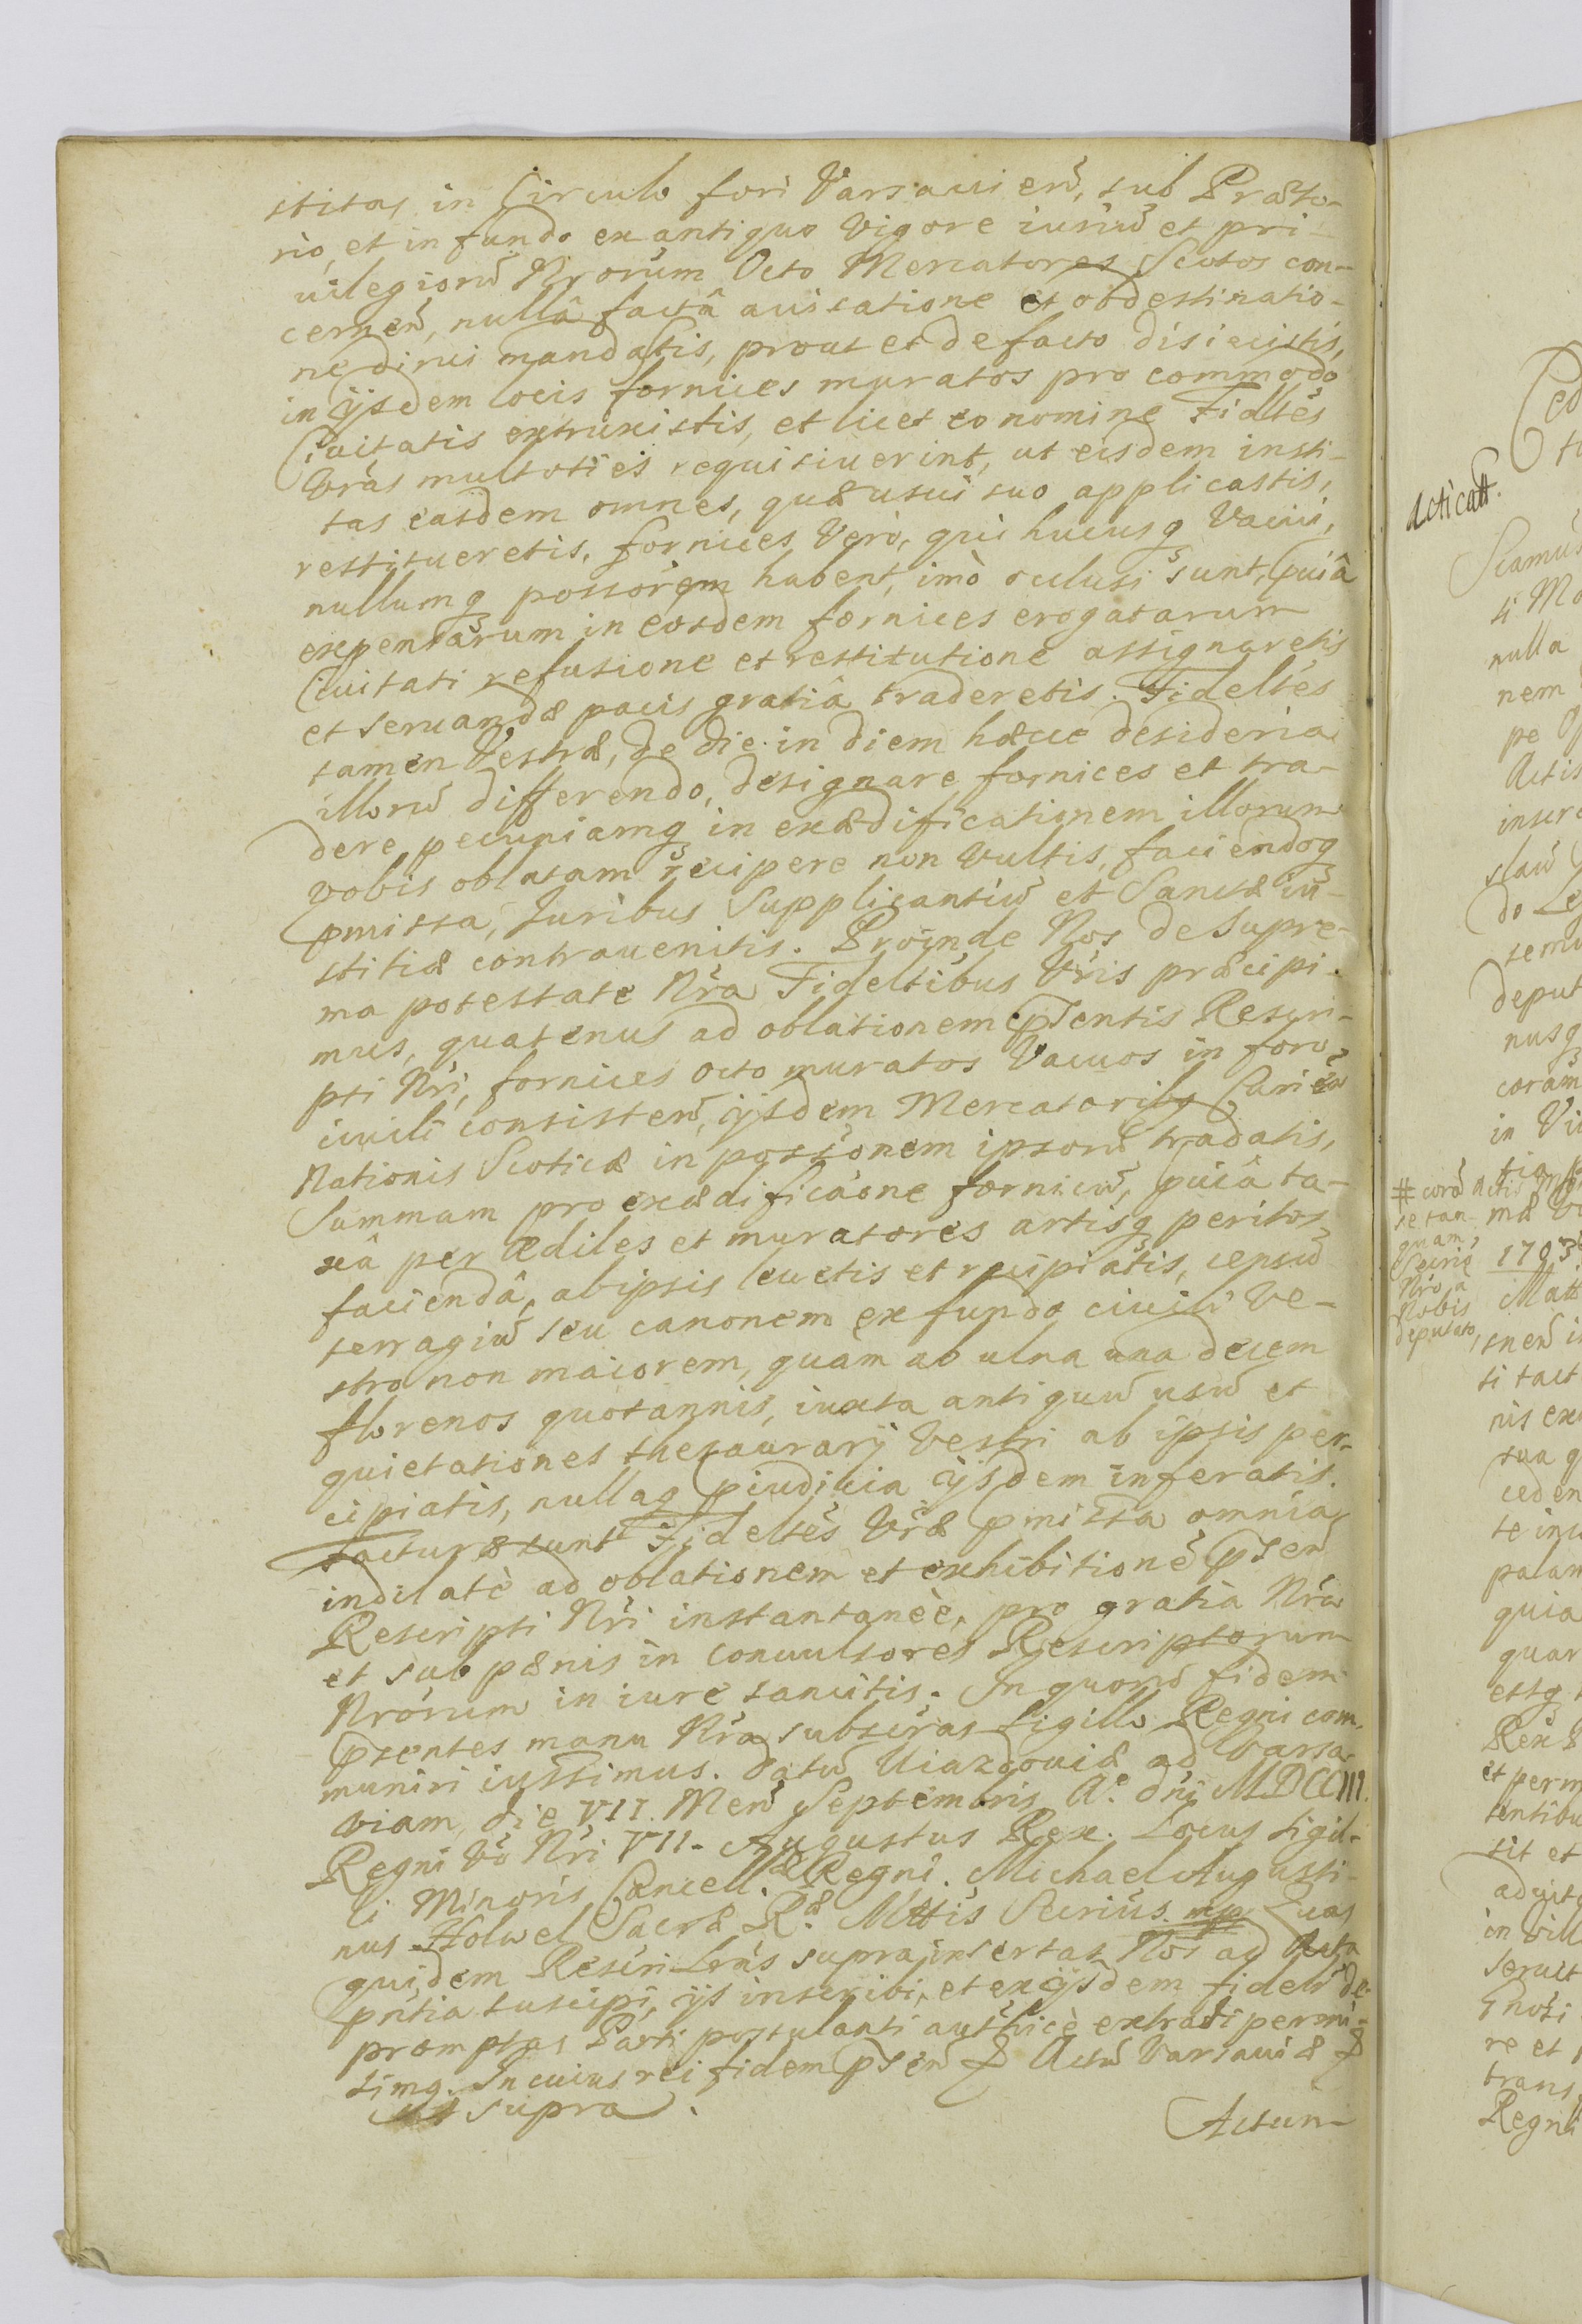 stitas in Circulo fori Varsavien̄, sub Præto-
rio, et in fundo ex antiquo Vigore iuriū et pri-
uilegiorū Nrorum Octo Mercatores Scotos con-
cernen̄, nullâ factâ auisatione et obdestinatio-
ne dirui mandatis, prout et de facto disiecistis,
in ijsdem locis fornices muratos pro commodo
Ciuitatis extruxistis, et licet eo nomine Fidltes
Vras multoties requisiuerint, ut eisdem insti-
tas easdem omnes, quæ usui suo applicastis,
restitueretis, fornices Vero, qui hucusq Vacui,
nullumq possorem habent, imò oclusi sunt, puiâ
expensarum in eosdem fornices erogatarum
Ciuitati refusione et restitutione assignaretis
et seruandæ pacis gratiâ traderetis. Fideltes
tamen Vestræ, de die in diem hæcce desideria
illorū differendo, designare fornices et tra-
dere, pecuniamq in exædificationem illorum
vobis oblatam recipere non Vultis, faciendoq
pmissa, Juribus Supplicantiū et Sanctæ iu-
stitiæ contrauenitis. Proinde Nos de Supre-
ma potestate Nra Fideltibus Vris præcipi-
mus, quatenus ad oblationem psentis Rescri-
pti Nri, fornices octo muratos Vacuos in foro
ciuili consisten̄, ijsdem Mercatoribq Curien̄
Nationis Scoticæ in possionem ipsorū tradatis,
Summam pro exædificaone fornicū, puiâ ta-
xâ per ædiles et muratores artisq peritos
faciendâ, ab ipsis leuetis et recipiatis, censū
terragiū seu canonem ex fundo ciuili Ve-
stro non maiorem, quàm ab ulna una decem
florenos quotannis, iuxta antiquū usū et
quietationes thesaurarij Vestri ab ipsis per-
cipiatis, nullaq piudicia ijsdem inferatis.
Facturæ sunt Fideltes Vræ pmissa omnia
indilatè ad oblationem et exhibitionē psen̄
Rescripti Nri instantaneè, pro gratia Nra
et sub pænis in conuulsores Rescriptorum
Nrorum in iure sancitis. In quorū fidem
psentes manu Nra subscras sigillo Regni com-
muniri iussimus. Datū Uiazdouiæ ad Varsa-
viam, die VII. Men̄ Septembris Aº. dni MDCCIII.
Regni Vo Nri VII. Augustus Rex. Locus sigil-
li Minoris Cancell.æ Regni. Michael Augusti-
nus Holwel Sacræ R.æ Mttis Secrius mp Quas
quidem Rescri Lras supra insertas Nos ad Acta
pntia suscipi, ijs inscribi, et ex ijsdem fideli de-
promptas Parti postulanti authice extradi permi-
simq. In cuius rei fidem psen̄ & Actū Varsauiæ &
ut supra.
Actum
Acticatt.
# corā Actis
se tan-
quam
Secrio
Nro a
Nobis
deputato,
Scamus
si Mo
nulla
nem
pe
Actis
inser
slaū
do Le
deput
nusq
coram
in Vi
1703
Matt
si tact
nis ex
sua q
ceden
te ins
palam
quia
quar
estq
Rex
et perm
sentibu
sit et
in vill
re et
trans
Regni